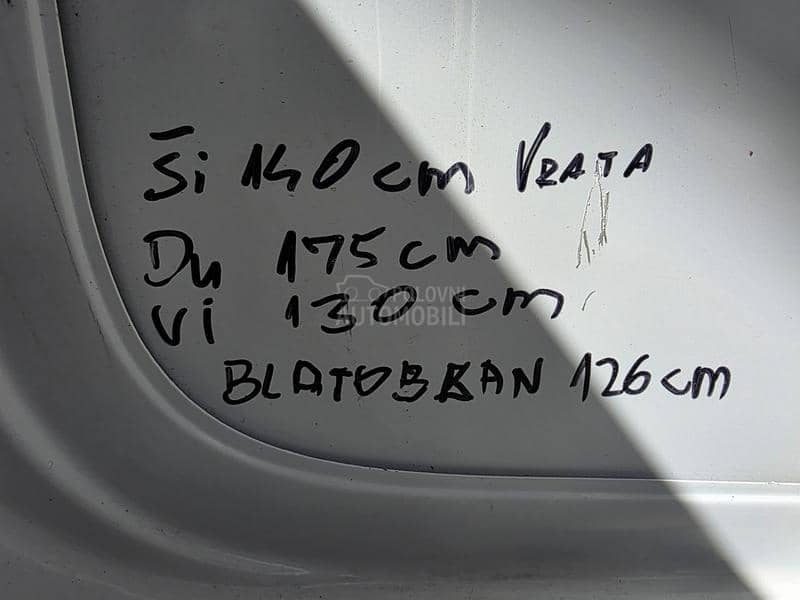 Ši 140 cm VRATA
Du 175 cm
Vi 130 cm
POLOVNI
AUTOMOBILI
BLATOBRAN 126 cm